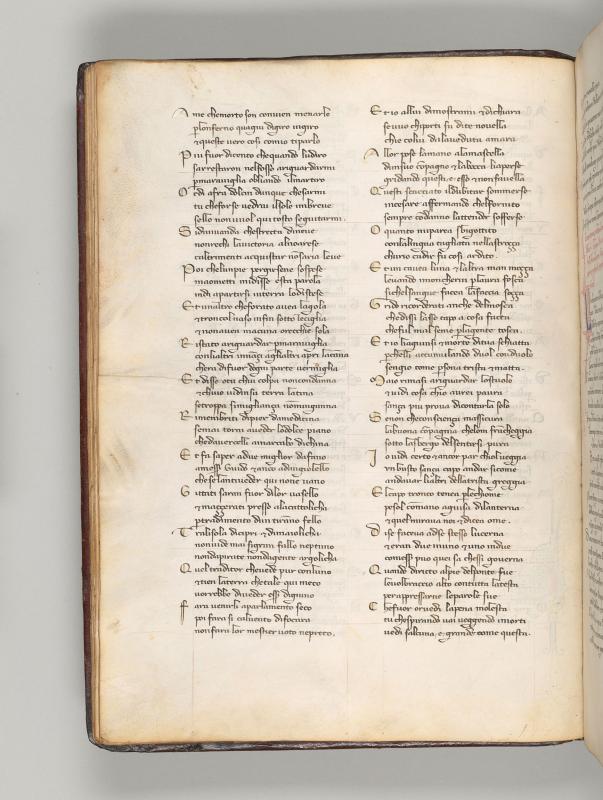 A me chemorto son convien menarlo
plonferno quagiu digiro ingiro
& questo vero cosi comio tiparlo
P iu fuor dicento chequando ludiro
sarrestaron nelfosso ariguardarmi
pmaraviglia obliando ilmartiro
O r di afra dolcin dunque chesarmi
tu cheforse vedrai ilsole imbreve
sello nonvuol qui tosto seguitarmi.
S i divivanda chestretta dineve
nonrechi lavictoria alnoarese
caltrimenti acquistar nosaria leve
P oi chelunpie pergirsene sospese
maometti midisse esta parola
indi apartirsi interra lodistese
E t unaltro cheforato avea lagola
& troncol naso infin sotto leciglia
& nonavea macuna orecchie sola
R istato ariguardar pmaraviglia
conlialtri innāçi aglialtri apri lacāna
chera difuor dogni parte vermiglia
E t disse otu chui colpa noncondanna
& chuio vidinsu terra latina
setroppa simigliança nonminganna
R imembriti dipier damedicina
semai torni aveder lodolce piano
chedavercelli amarcabo dichina
E t fa saper adue miglior dafano
amessR Guido & anco adangiolello
chesellantiveder qui none vano
G ittati saran fuor dilor vasello
& maçerati presso alacattolicha
ptradimento dun tirāno fello
T ralisola dicipri & dimaiolicha
nonvide mai sigran fallo neptuno
nondapirate nondigente argolicha
Q uel traditor chevede pur conluno
& tien laterra chetale qui meco
vorrebbe diveder essR digiuno
F ara venirli aparlamento seco
poi fara si calvento difocara
nonfara lor mestier voto nepreco.
E t io allui dimostrami & dichiara
sevuo chiporti su dite novella
chie colui dalaveduta amara
A llor pose lamano alamascella
dunsuo cōpagno & labocca liaperse
gridando questi e esso & non favella
Q uesti scacciato ildubitar sommerse
incesare affermando chelfornito
sempre cōdanno lattender sofferse
O quanto miparea sbigottito
conlalingua tagliata nellastroçça
churio cadir fu cosi ardito.
E t un cavea luna & laltra man moçça
levando moncherin plaura foscha
sichelsangue facea lafaccia soçça
G rido ricorderati anche delmosca
chedissi lasso capo a cosa facta
cheful mal seme plagente tosca.
E t io lagiunsi & morte ditua schiatta
pchelli accumulando duol conduolo
sengio come psona trista & matta.
M aio rimasi ariguardar lostuolo
& vidi cosa chio aurei paura
sança piu prova dicontarla solo
S enon checonscienza massicura
labuona cōpagnia chelom francheggia
sotto lasbergo delsentirsi pura
I o vidi certo & ancor par chiolveggia
un busto sança capo andar sicome
andavan lialtri dellatrista greggia
E l capo tronco tenea plechiome
pesol comano aguisa dilanterna
& quel mirava noi & dicea ome.
D ise facea adise stesso lucerna
& eran due inuno & uno indue
comessR puo quei sa chessi governa
Q uando diritto alpie delponte fue
levolbraccio alto contutta latesta
perappressarne leparole sue
C hefuor orvedi lapena molesta
tu chespirando vai veggendo imorti
vedi salcuna e grande come questa.